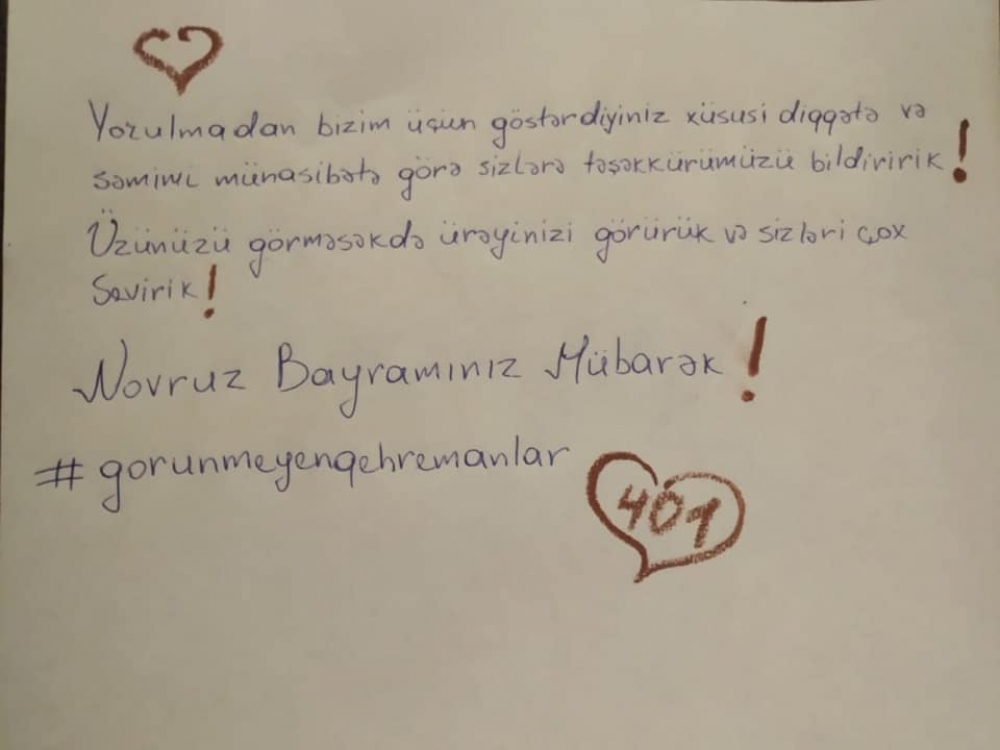 Yorulmadan bizim üçün göstərdiyiniz xüsusi diqqətə və
səmimi münasibətə görə sizlərə təşəkkürümüzü bildiririk!
Üzünüzü görməsəkdə ürəyinizi görürük və sizləri çox
Səvirik!
Novruz Bayramınız Mübarək!
#gorunmeyenqehremanlar
401